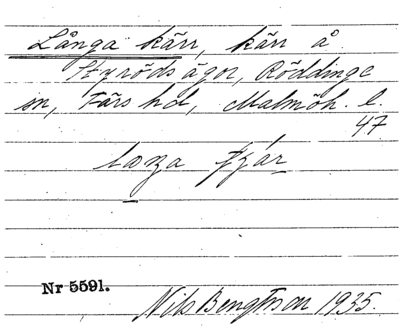 Långa kärr, kärr å
Styröds ägor, Röddinge
sn, Färs hd, Malmöh. l.
47
Nr 5591.
Nils Bengtson 1935.